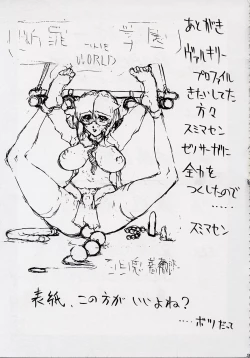 THE
WORLD
あとがき
ヴァルキリー
プロファイル
きたいしてた
方々
スミマセン
ゼノサーガに
全力を
つくしたので
.....
スミマセン
表紙、この方が いいよね?
.....ボツだって